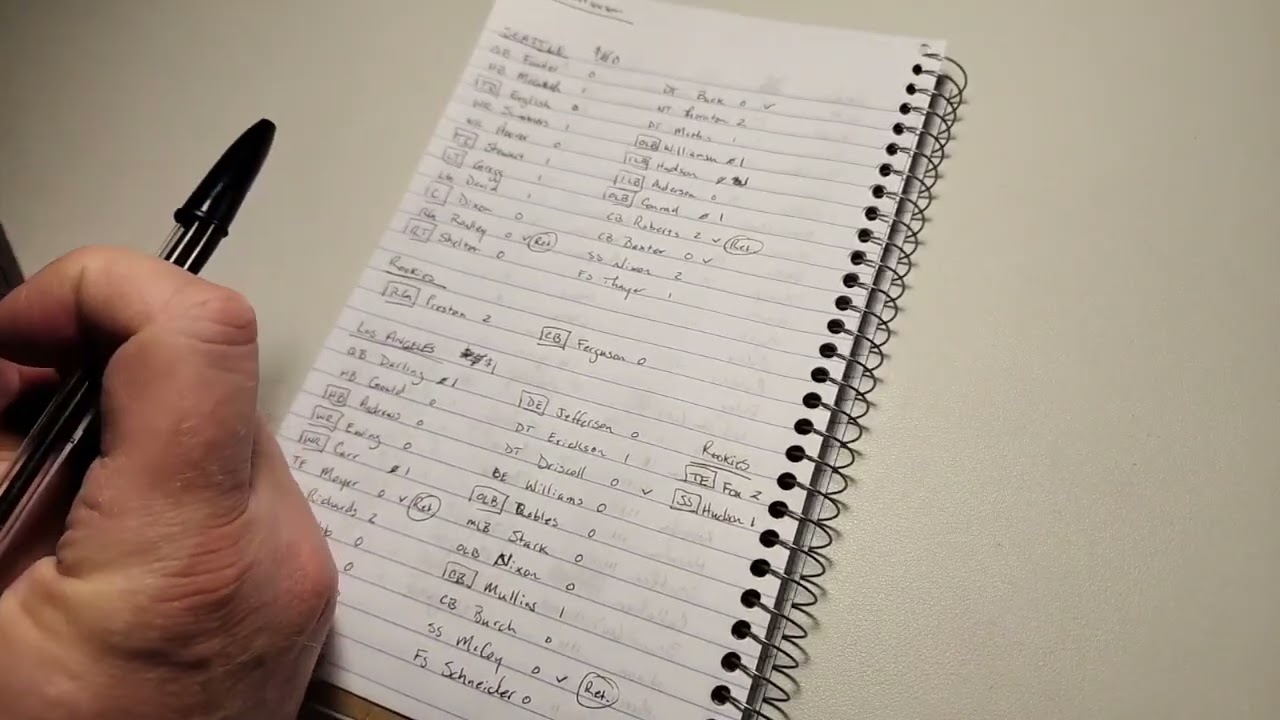 SEATTLE
QB Fowler 0
HB 1
English 0
WR Summers 1
WR Hoover 0
TE Stewart 1
LT Gregg 1
LG David 1
C Dixon 0
RG Rowley 0 ✓ Ret.
RT Shelton 0
DT Buck 0 ✓
NT Thornton 2
DT Mathis 1
OLB Williamson 1
ILB Hudson
ILB Anderson 0
OLB Conrad 1
CB Roberts 2 ✓ Ret.
CB Baxter 0 ✓
SS Nixon 2
FS Thayer 1
Rookies
RG Preston 2
CB Ferguson 0
LOS ANGELES $1
QB Darling 1
HB Gould 0
HB Andrews 0
WR Ewing 0
WR Carr 1
TE Meyer 0 ✓ Ret.
Richards 2
0
0
DE Jefferson 0
DT Erickson 1
DT Driscoll 0 ✓
DE Williams 0
OLB Robles 0
MLB Stark 0
OLB Nixon 0
CB Mullins 1
CB Burch 0
SS McCoy 0 ✓ Ret.
FS Schneider 0
Rookies
TE Fox 2
SS Hudson 1